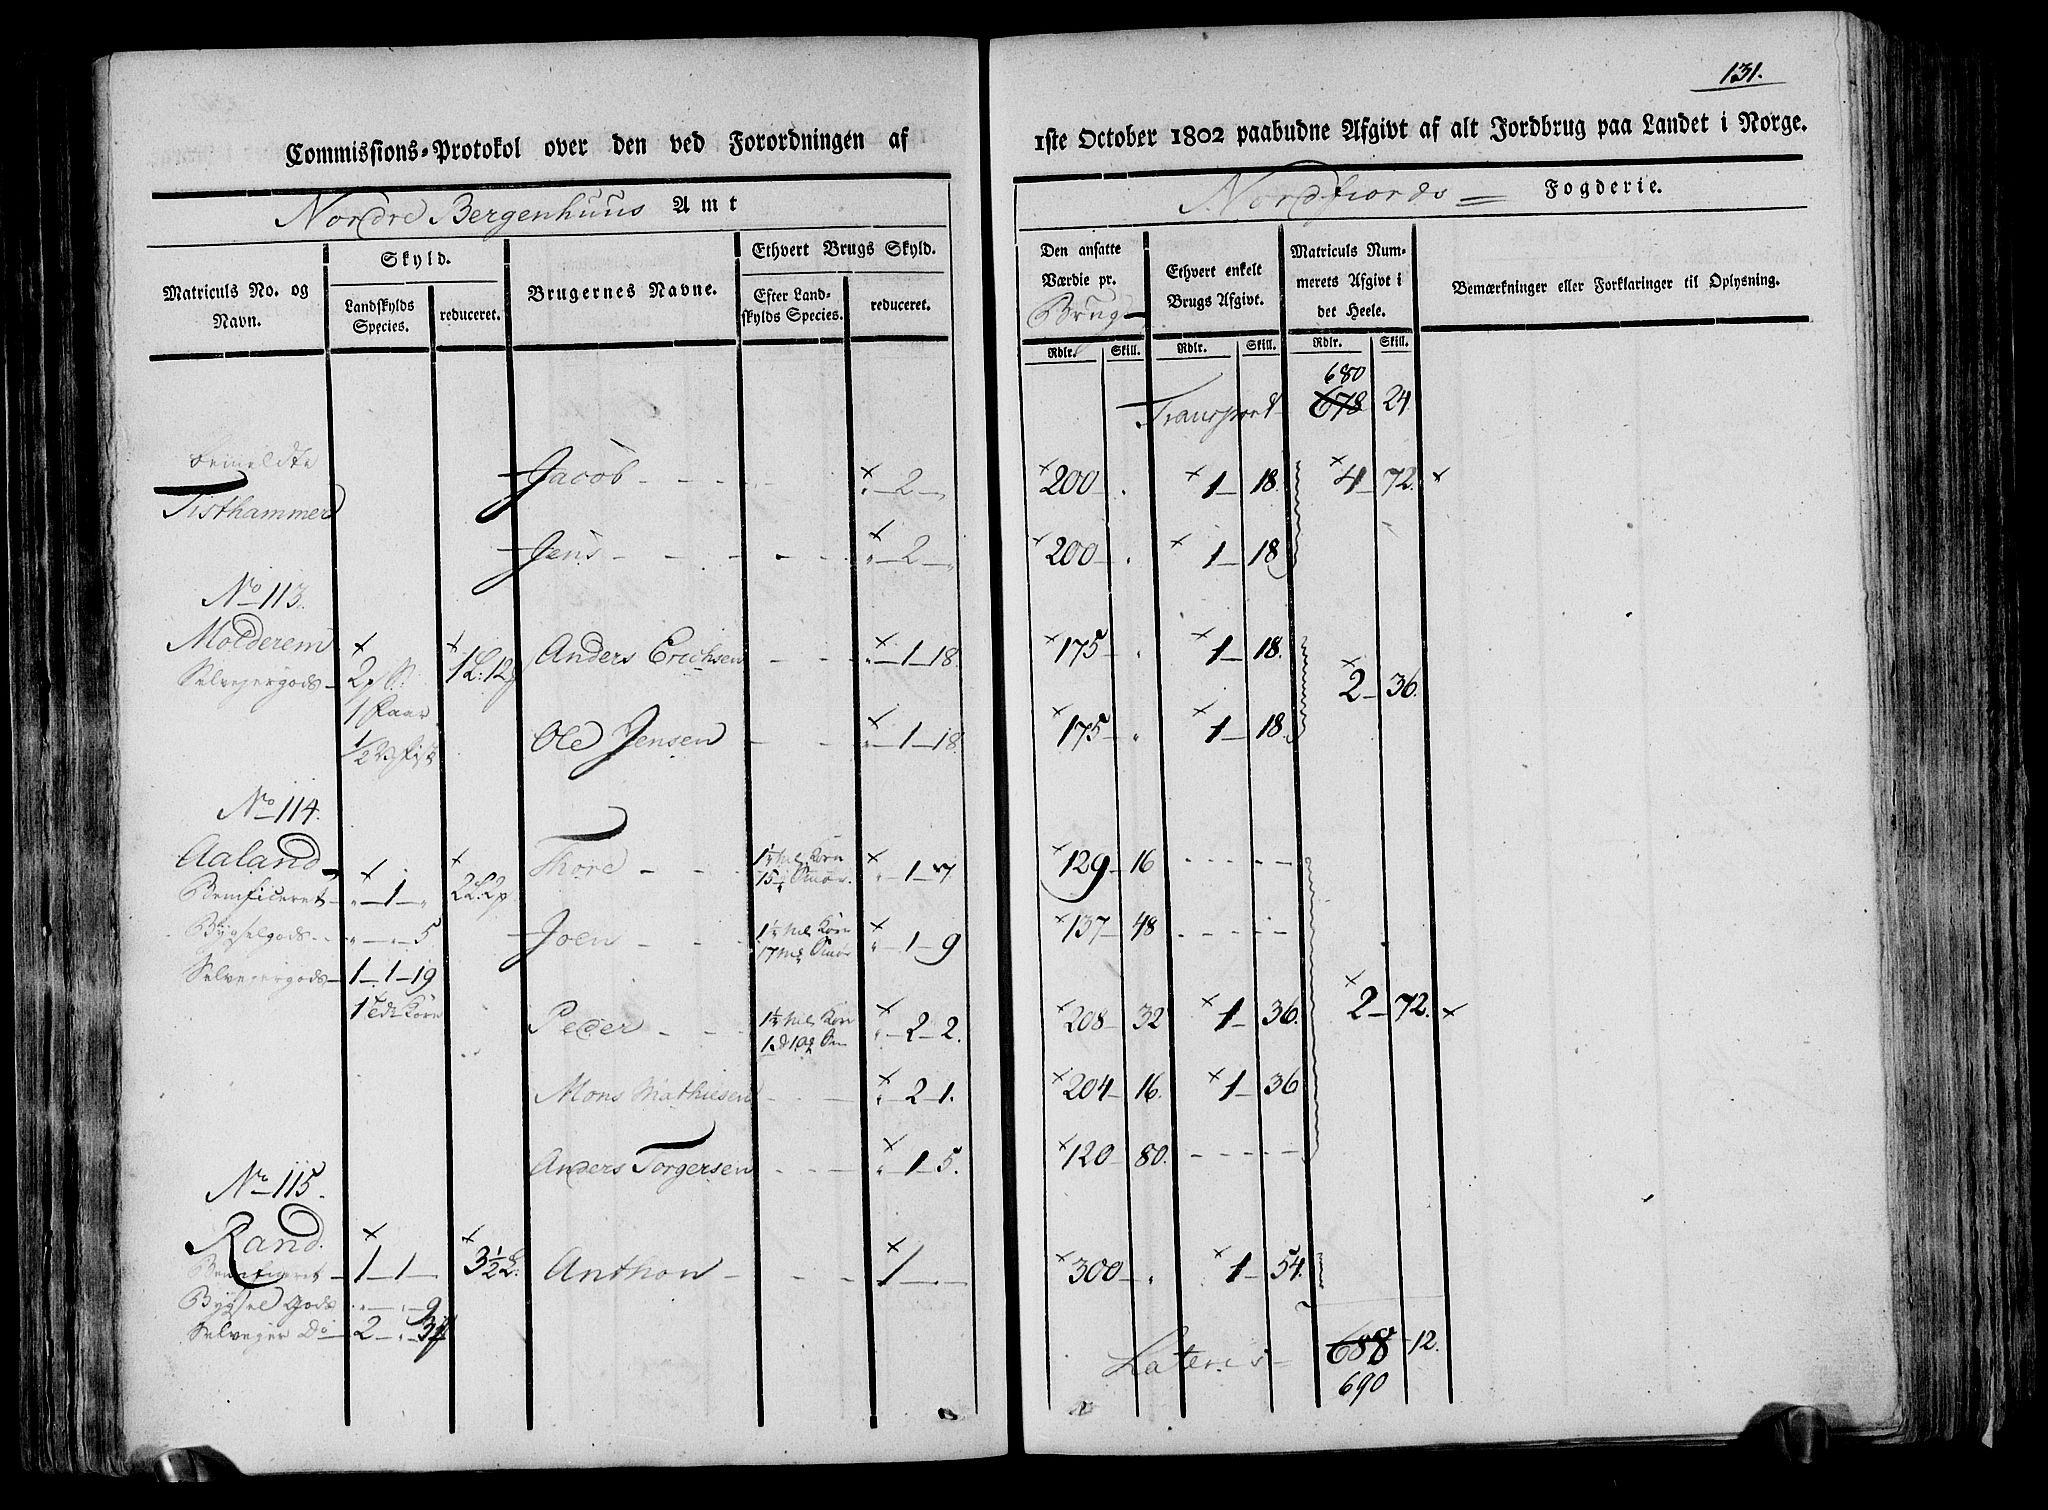 131.
Commissions-Protokol over den ved Forordningen af
1ste October 1802 paabudne Afgivt af alt Jordbrug paa Landet i Norge.
Nordre Bergenhuus Amt
Nordfiords Fogderie.
Matriculs No. og Navn.
Skyld.
Landskylds Species.
reduceret.
Brugernes Navne.
Ethvert Brugs Skyld.
Efter Landskylds Species.
reduceret.
Den ansatte Værdie pr. Brug
Ethvert enkelt Brugs Afgivt.
Matriculs Nummerets Afgivt i det Heele.
Bemærkninger eller Forklaringer til Oplysning.
Rdlr. Skill. Rdlr. Skill. Rdlr. Skill.
Transport 680 678 24
bemeldte
Tisthammer
Jacob - - - - × „ 2 „ × 200 - . × 1 - 18. × 4 - 72. ×
Jens - - - - - - × „ 2 „ × 200 - . × 1 - 18
No 113.
Molderem
Selvejergods
1 Faar
Anders Erichsen - - × „ 1 - 18. × 175 - „ × 1 - 18.
× 2 - 36.
Ole Jensen - - × „ 1 - 18. × 175 - „ × 1 - 18.
No 114.
Aaland
Beneficeret - „ 1 - „
Bygselgods - - „ - „ 5
Selvejergods - 1 - 1 - 19
Thore - - - × „ 1 - 7 × 129 - 16 - - - - -
Joen - - - × „ 1 - 9 × 137 - 48 - - - - -
Peder - - - × „ 2 - 2. × 208 - 32 × 1 - 36. × 2 - 72. ×
Mons Mathiesen - - × „ 2 - 1. × 204 - 16. × 1 - 36
Anders Torgersen - - × „ 1 - 5. × 120 - 80. - - - - -
No 115.
Rand.
Beneficeret - 1 - 1 -
Bygsel Gods „ - „ 9
Selvejer Do - 2 - „
Anthon - - - × 1 - - × 300 - „ × 1 - 54.
Lateris - 688 - 12.
690